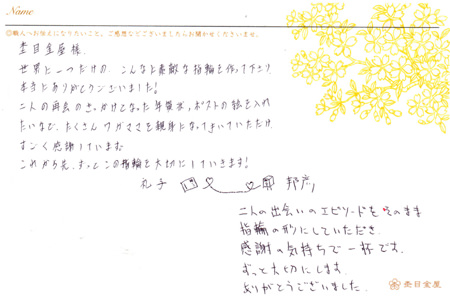 Name
◎職人へお伝えになりたいこと、ご感想などございましたらお聞かせくださいませ。
杢目金屋様
世界に一つだけの、こんなに素敵な指輪を作って下さり
本当にありがとうございました!
二人の再会のきっかけとなった年賀状、ポストの絵を入れ
たいなど、たくさんワガママを親身になってきいていただけ
すごく感謝しています。
これから先、ずっとこの指輪を大切にしていきます!
丸子 邦彦
二人の出会いのエピソードをそのまま
指輪の形にしていただき、
感謝の気持ちで一杯です。
ずっと大切にします。
ありがとうございました。
杢目金屋